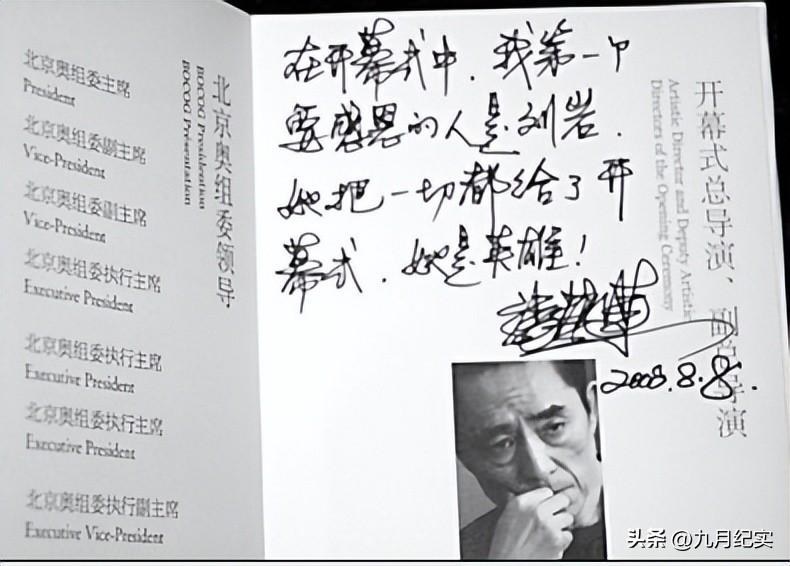 北京奥组委主席
President
北京奥组委副主席
Vice-President
北京奥组委副主席
Vice-President
北京奥组委执行主席
Executive President
北京奥组委执行主席
Executive President
北京奥组委执行主席
Executive President
北京奥组委执行副主席
Executive Vice-President
北京奥组委领导
BOCOG Presidention
BOCOG Présentation
在开幕式中，我第一个
要感恩的人是刘岩．
她把一切都给了开
幕式．她是英雄！
2008.8.8.
开幕式总导演、副总导演
Artistic Director and Deputy Artistic
Directors of the Opening Ceremony
头条 @九月纪实